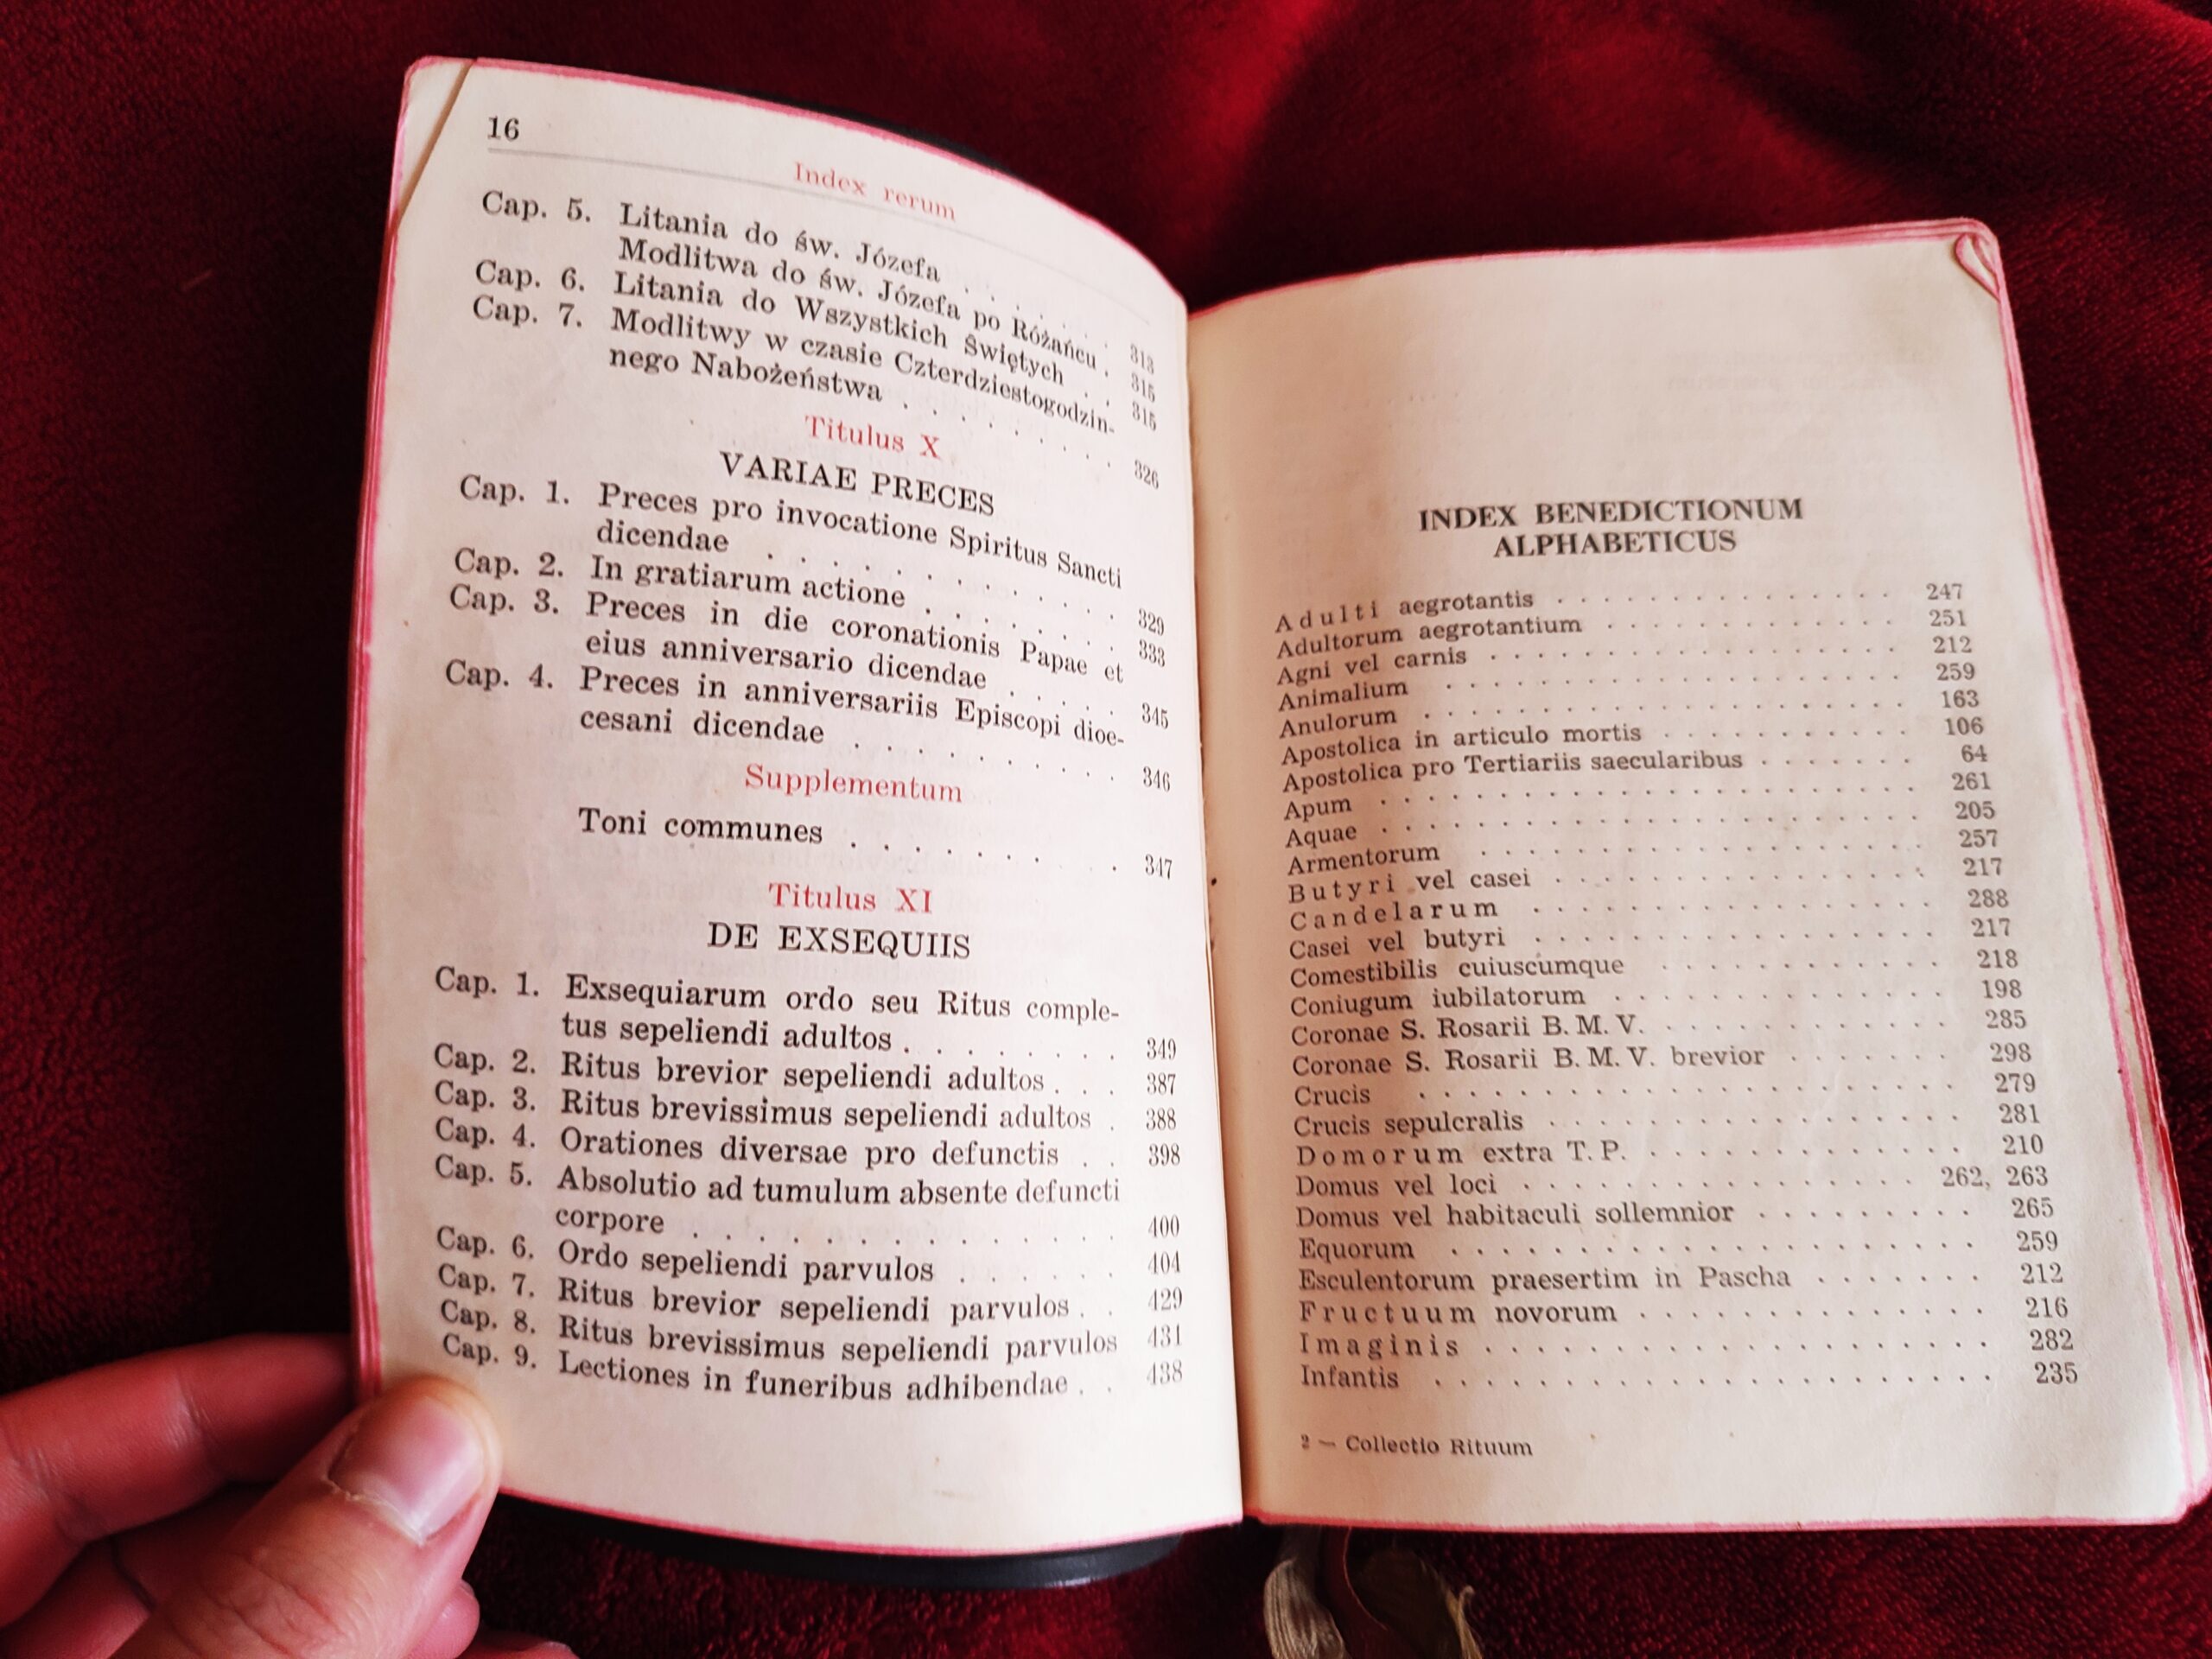 16
Index rerum
Cap. 5. Litania do św. Józefa . . . . . . 313
Modlitwa do św. Józefa po Różańcu . 315
Cap. 6. Litania do Wszystkich Świętych . . 315
Cap. 7. Modlitwy w czasie Czterdziestogodzin-
nego Nabożeństwa . . . . . . . 326
Titulus X
VARIAE PRECES
Cap. 1. Preces pro invocatione Spiritus Sancti
dicendae . . . . . . . . . 329
Cap. 2. In gratiarum actione . . . . . . 333
Cap. 3. Preces in die coronationis Papae et
eius anniversario dicendae . . . . 345
Cap. 4. Preces in anniversariis Episcopi dioe-
cesani dicendae . . . . . . . 346
Supplementum
Toni communes . . . . . . . . 347
Titulus XI
DE EXSEQUIIS
Cap. 1. Exsequiarum ordo seu Ritus comple-
tus sepeliendi adultos . . . . . . 349
Cap. 2. Ritus brevior sepeliendi adultos . . . 387
Cap. 3. Ritus brevissimus sepeliendi adultos . 388
Cap. 4. Orationes diversae pro defunctis . . 398
Cap. 5. Absolutio ad tumulum absente defuncti
corpore . . . . . . . . . . . 400
Cap. 6. Ordo sepeliendi parvulos . . . . . 404
Cap. 7. Ritus brevior sepeliendi parvulos . . 429
Cap. 8. Ritus brevissimus sepeliendi parvulos 431
Cap. 9. Lectiones in funeribus adhibendae . . 438
INDEX BENEDICTIONUM
ALPHABETICUS
Adulti aegrotantis . . . . . . . . . . . . . 247
Adultorum aegrotantium . . . . . . . . . . . 251
Agni vel carnis . . . . . . . . . . . . . . . 212
Animalium . . . . . . . . . . . . . . . . . 259
Anulorum . . . . . . . . . . . . . . . . . . 163
Apostolica in articulo mortis . . . . . . . . . 106
Apostolica pro Tertiariis saecularibus . . . . . . 64
Apum . . . . . . . . . . . . . . . . . . . . 261
Aquae . . . . . . . . . . . . . . . . . . . . 205
Armentorum . . . . . . . . . . . . . . . . . 257
Butyri vel casei . . . . . . . . . . . . . . 217
Candelarum . . . . . . . . . . . . . . . 288
Casei vel butyri . . . . . . . . . . . . . . . 217
Comestibilis cuiuscumque . . . . . . . . . . 218
Coniugum iubilatorum . . . . . . . . . . . . 198
Coronae S. Rosarii B. M. V. . . . . . . . . . . 285
Coronae S. Rosarii B. M. V. brevior . . . . . . 298
Crucis . . . . . . . . . . . . . . . . . . . 279
Crucis sepulcralis . . . . . . . . . . . . . . 281
Domorum extra T. P. . . . . . . . . . . . . 210
Domus vel loci . . . . . . . . . . . . . . 262, 263
Domus vel habitaculi sollemnior . . . . . . . . 265
Equorum . . . . . . . . . . . . . . . . . . 259
Esculentorum praesertim in Pascha . . . . . . 212
Fructuum novorum . . . . . . . . . . . . . 216
Imaginis . . . . . . . . . . . . . . . . . 282
Infantis . . . . . . . . . . . . . . . . . . . 235
2 — Collectio Rituum